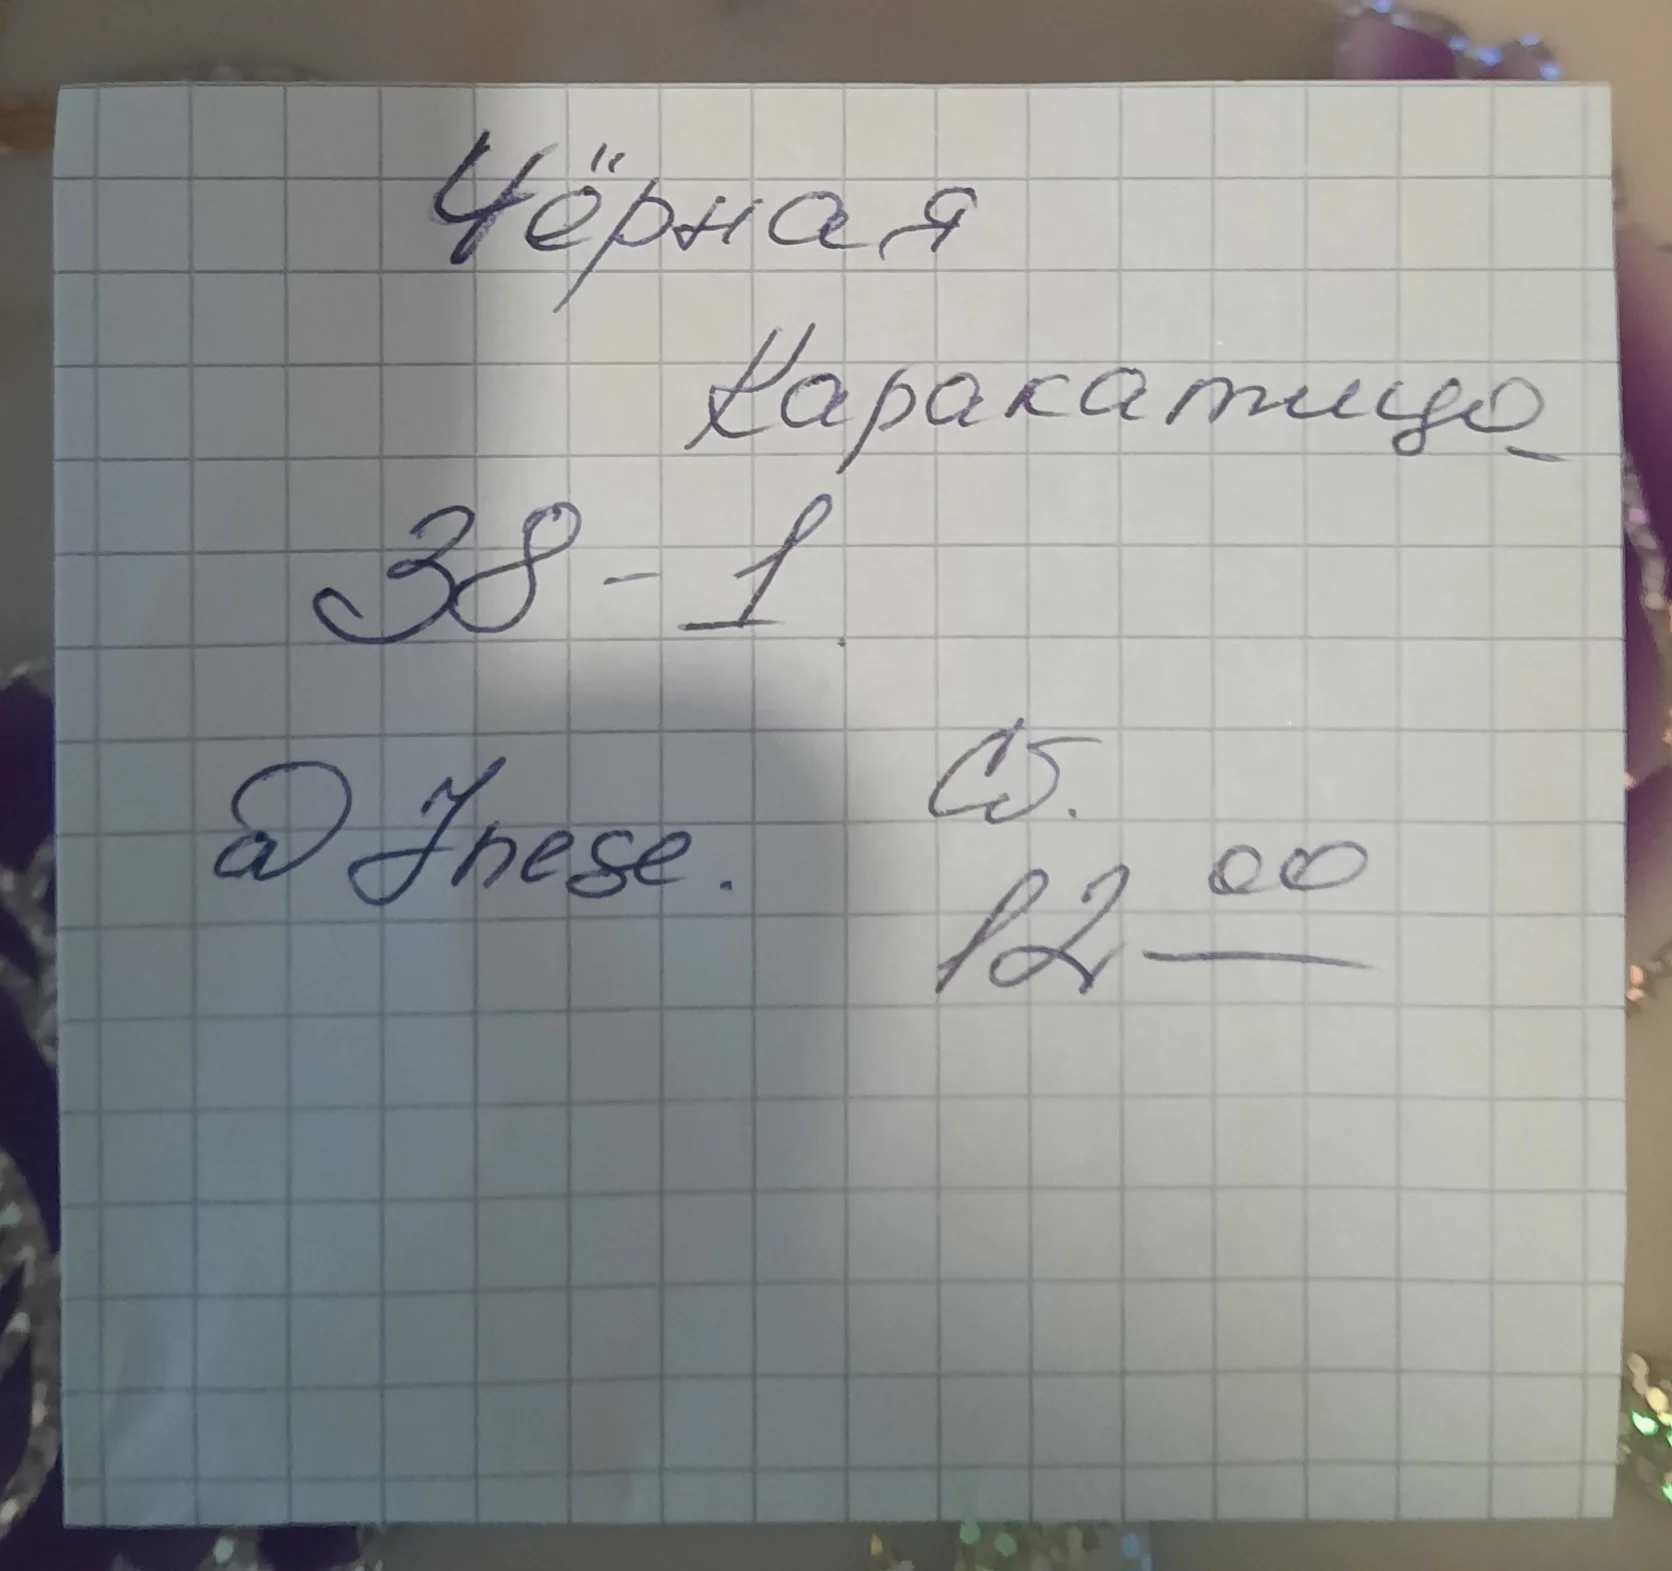 Чёрная
Каракатица
38-1.
а) Inese.
Сб.
12 00